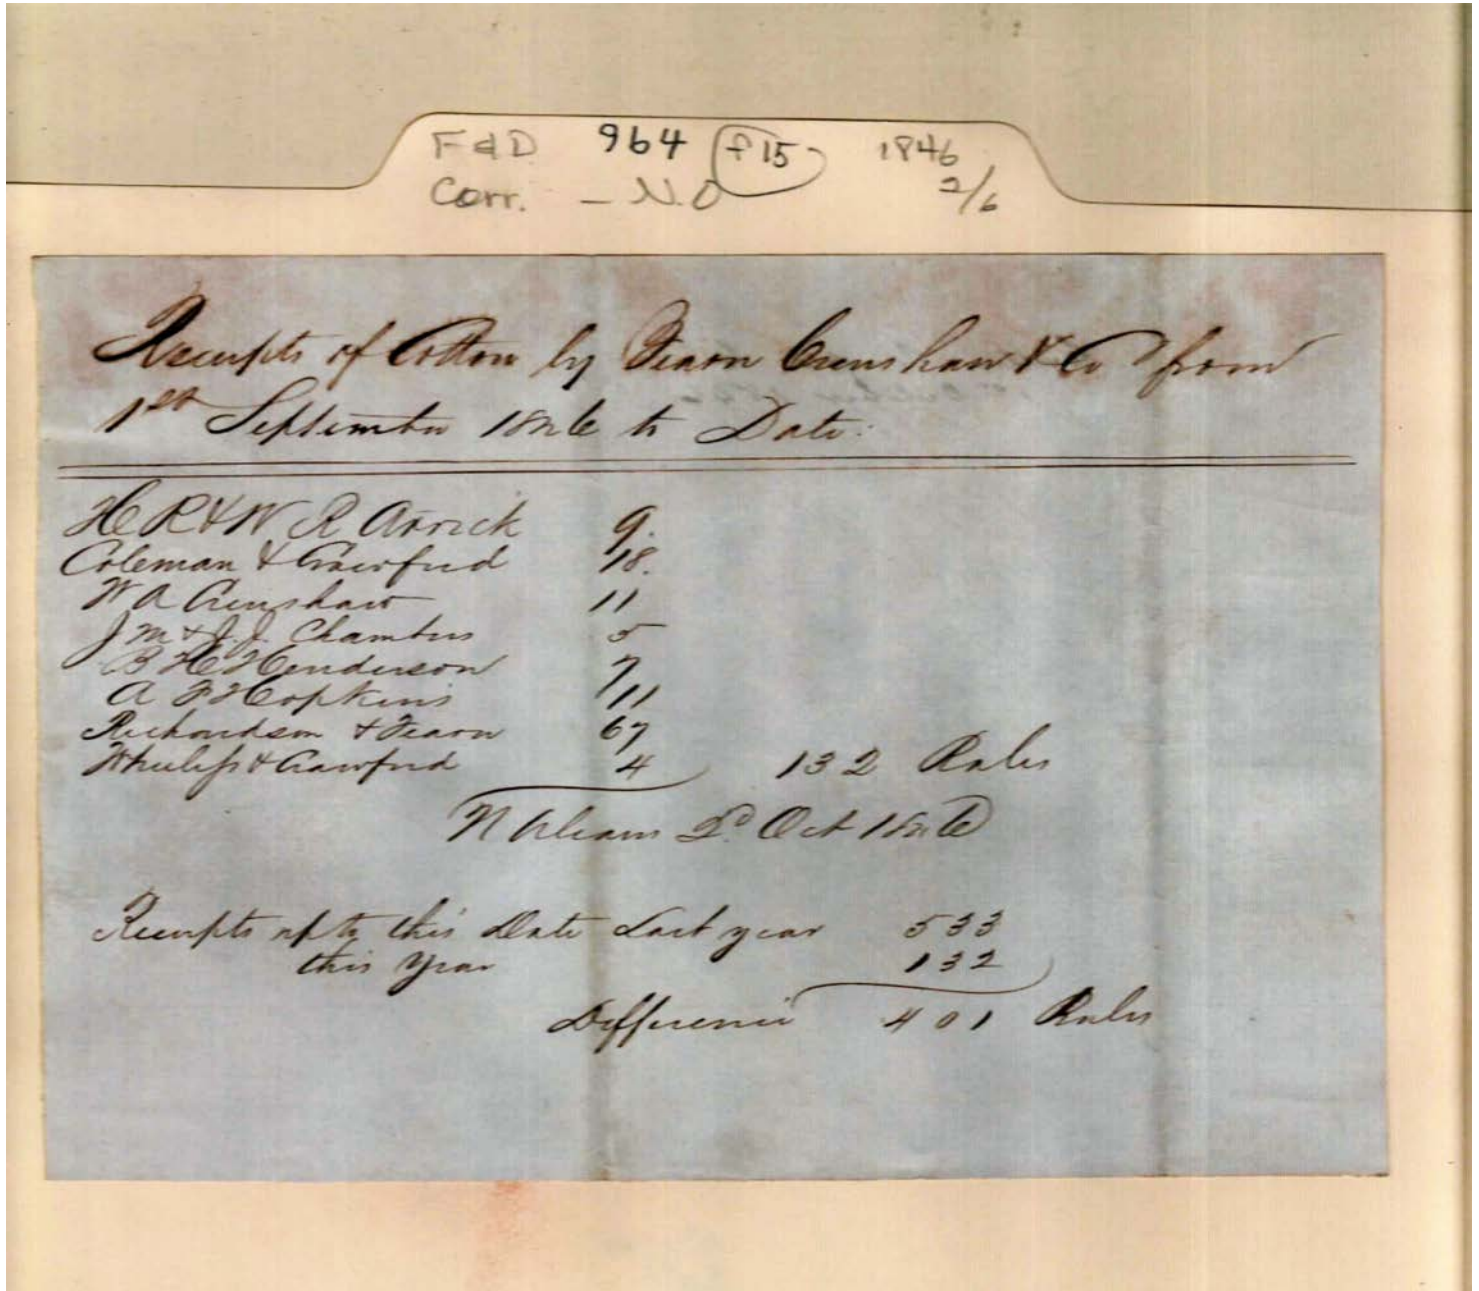 F&D 964 f15 1846
Corr. - N.O 2/6
Receipts of Cotton by Fearn Crenshaw & Co from
1st September 1846 to Date.
H R & W R Arrick 9.
Coleman & Crawford 18.
W A Crenshaw 11
J M & J. J. Chambers 5
B H Henderson 7
A F Hopkins 11
Richardson & Fearn 67
Wheeless & Crawford 4 132 Bales
N Orleans 2d Oct 1846
Receipts up to this Date Last year 533
this Year 132
Difference 401 Bales